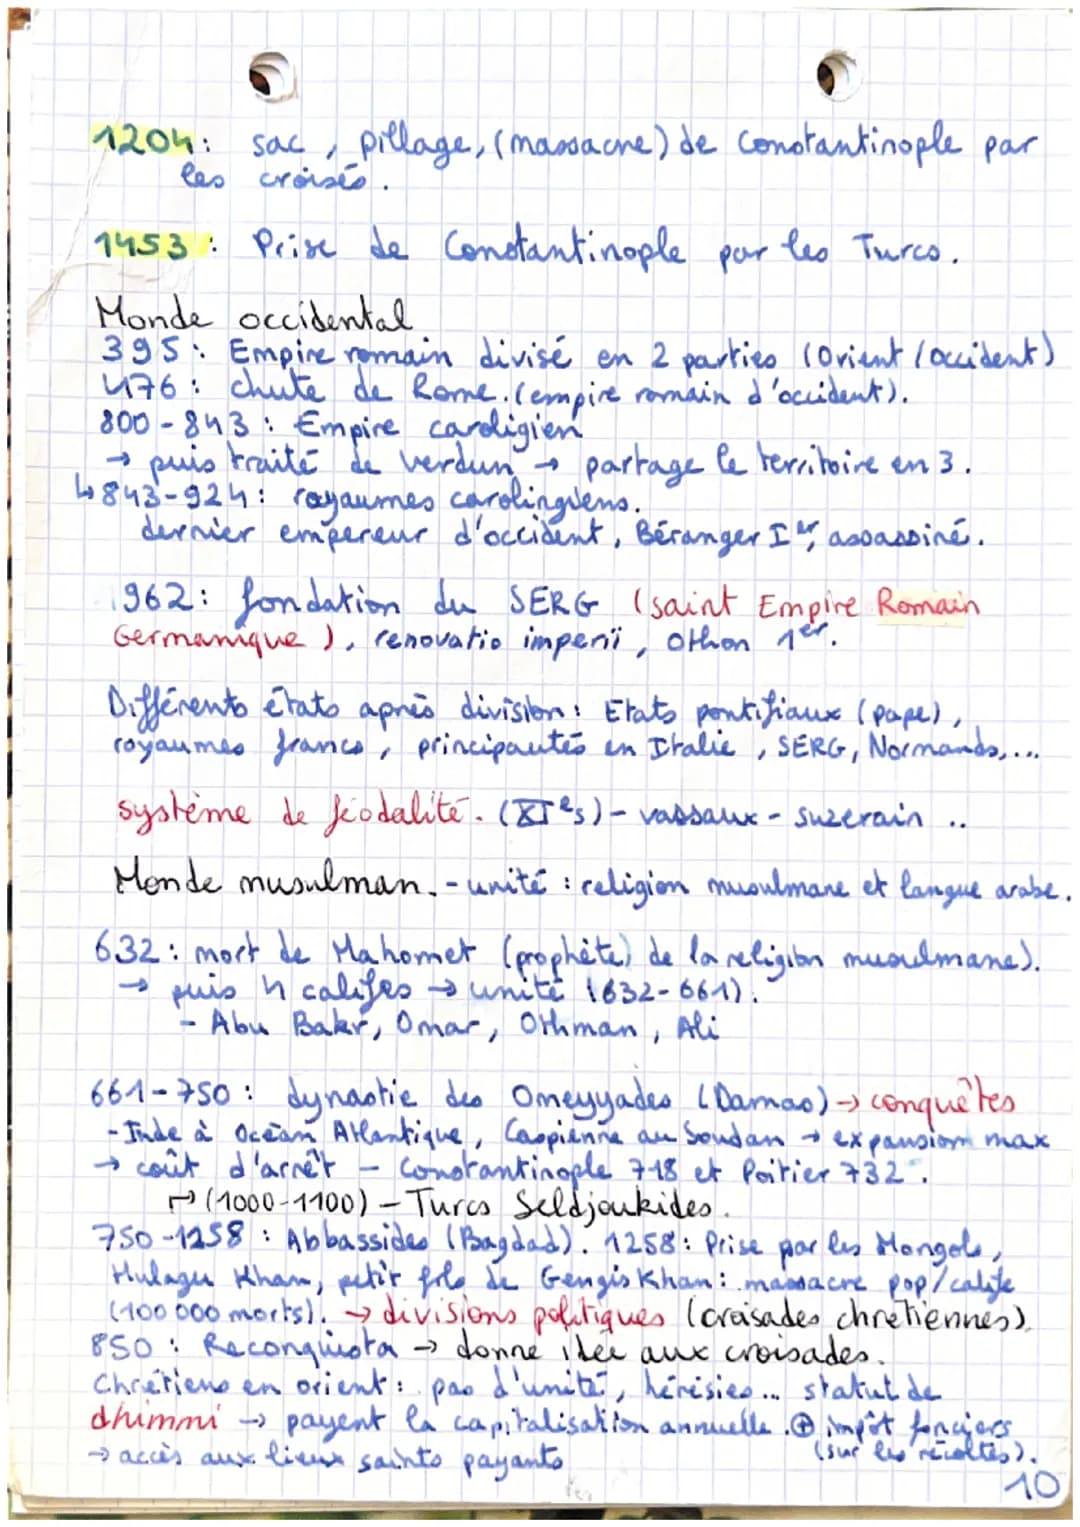 1204 : sac, pillage, (massacre) de Constantinople par
les croisés.
1453 : Prise de Constantinople par les Turcs.
Monde occidental
395 : Empire romain divisé en 2 parties (Orient/occident)
476 : chute de Rome. (empire romain d'occident).
800-843 : Empire caroligien
→ puis traité de Verdun → partage le territoire en 3.
↳ 843-924 : royaumes carolingiens.
dernier empereur d'occident, Béranger Ier, assassiné.
962 : fondation du SERG (saint Empire Romain
Germanique), renovatio imperii, Othon 1er.
Différents états après division : Etats pontifiaux (pape),
royaumes francs, principautés en Italie, SERG, Normands,...
système de féodalité. (XIes) - vassaux - suzerain ..
Monde musulman. - unité : religion musulmane et langue arabe.
632 : mort de Mahomet (prophète) de la religion musulmane).
→ puis 4 califes → unité (632-661).
- Abu Bakr, Omar, Othman, Ali
661-750 : dynastie des Omeyyades (Damas) → conquêtes
- Inde à Océan Atlantique, Caspienne au Soudan → expansion max
→ coût d'arrêt - Constantinople 718 et Poitier 732.
↱ (1000-1100) - Turcs Seldjoukides.
750-1258 : Abbassides (Bagdad). 1258 : Prise par les Mongols,
Hulagu Khan, petit fils de Gengis Khan : massacre pop/calife
(100 000 morts). → divisions politiques (croisades chrétiennes).
850 : Reconquista → donne idée aux croisades.
Chrétiens en orient : pas d'unité, hérésies... statut de
dhimmi → payent la capitalisation annuelle. ⊕ impôt fonciers
(sur les récoltes).
→ accès aux lieux saints payants
10